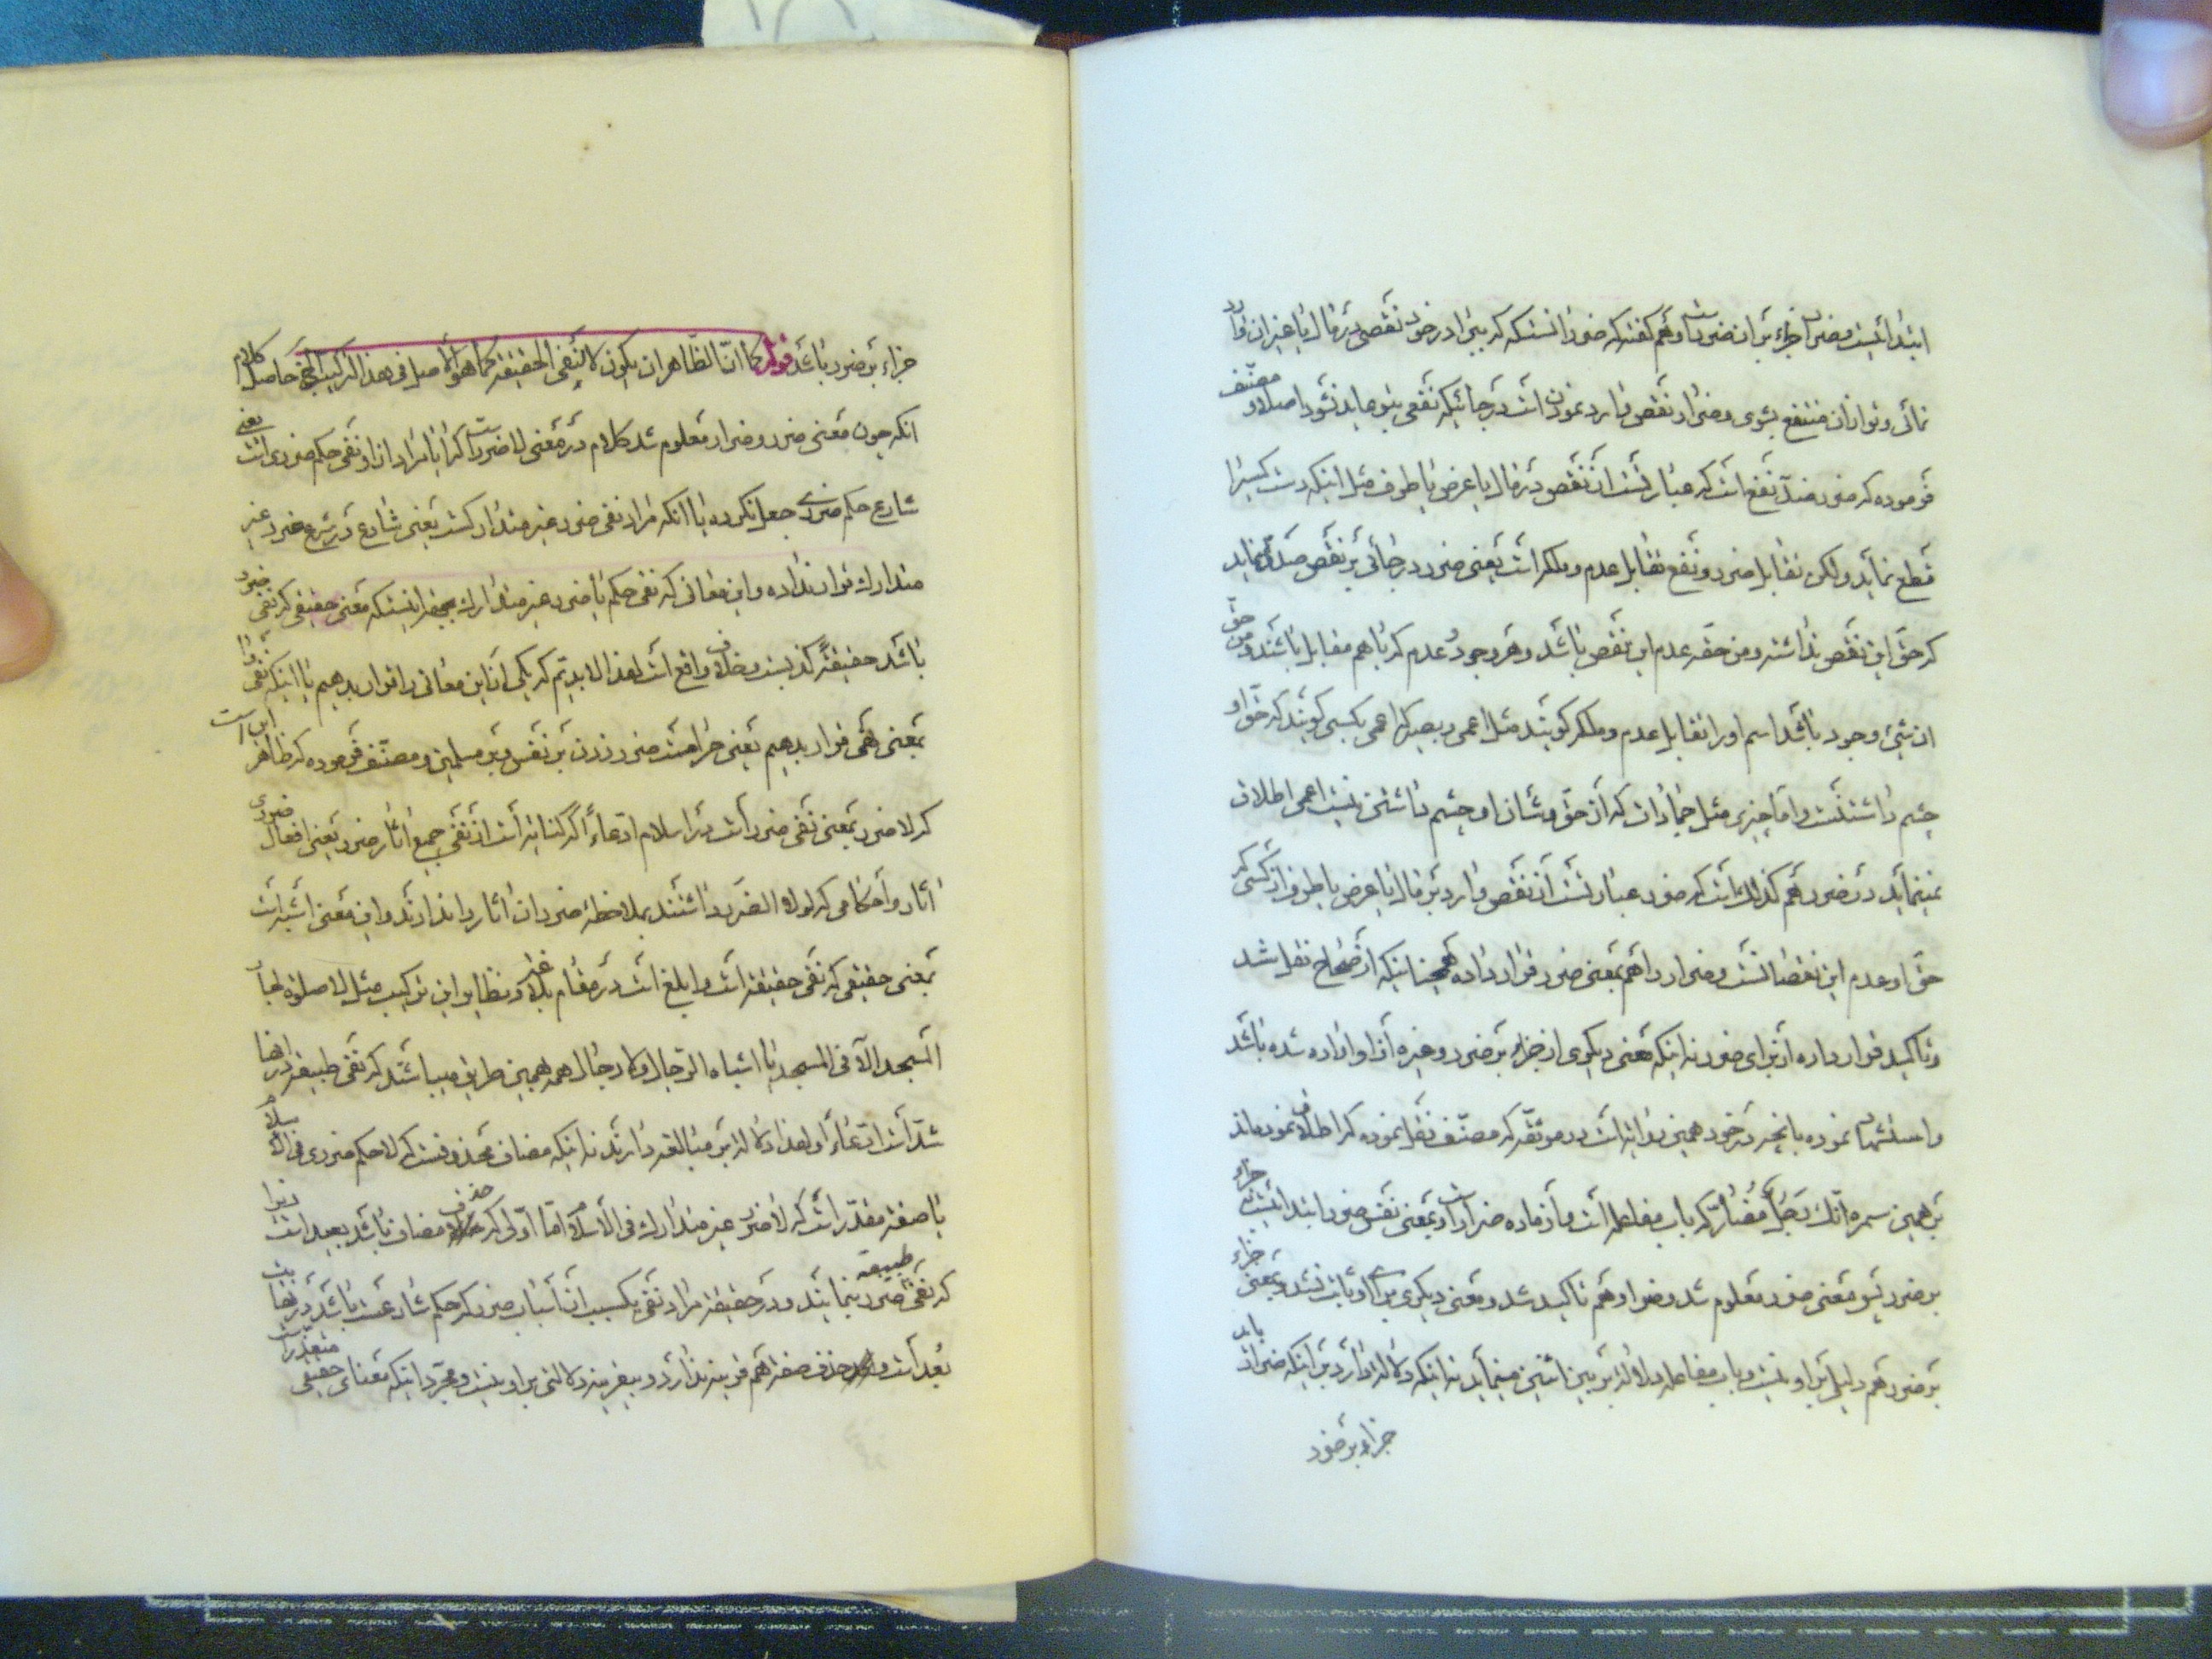 ابتدائیست و ضرار جزاء بر ان ضرر است و هم گفته که ضرر انستکه که ببری ادر خود نقصی در مال یا غیر ان وارد
نمائی و تو ازان منتفع بشوی و ضرار نقص وارد نمودن است در جائیکه نفعی بتو عاید نشود اصلا و مصنّف
فرموده که ضرر ضدّ نفع است که عبارتست از نقص در مال یا عرض یا طرف مثل اینکه دست کسیرا
قطع نماید ولکن تقابل ضرر و نفع تقابل عدم و ملکه است یعنی ضرر در جائی بر نقص صدق مینماید
که حقّ این نقص نداشته و من حقّه عدم این نقص باشد و هر وجود و عدم که با هم مقابل باشند و من حقّ
ان شیئ وجود باشد اسم او را تقابل عدم و ملکه گویند مثل اعمی و بصیر که اعمی بکسی گویند که حقّ او
چشم داشتنست و امّا چیزی مثل جمادات که از حقّ و شان او چشم داشتن نیست اعمی اطلاق
نمینماید در ضرر هم کذلک است که ضرر عبارتست از نقص وارد بر مال یا عرض یا طرف از کسی که
حقّ او عدم این نقصانست و ضرار را هم بمعنی ضرر قرار داده همچنانیکه از صحاح نقل شد
و تاکید قرار داده از برای ضرر نه اینکه معنی دیگری از جزاء بر ضرر و غیره از او اراده شده باشد
و استشهاد نموده بانچه در خود همین روایة است در موثّقه که مصنّف نقل نموده که اطلاق نموده اند
بر همین سمره انّک رَجُلٌ مُضارّ که باب مفاعله است و از ماده ضرار است و بمعنی نفس ضرر ابتدائیست نه جزاء
بر ضرر پس معنی ضرر معلوم شد و ضرار هم تاکید شد و معنی دیگری برای او ثابت نشد و بمعنی جزاء
بر ضرر هم دلیل بر او نیست و باب مفاعله دلالة بر بین اثنین مینماید نه اینکه دلالة دارد بر اینکه ضرار باید
جزاء بر ضرر
جزاء بر ضرر باشد قوله کما انّ الظّاهر ان یکون لا لنفی الحقیقة کما هو الاصل فی هذا الترکیب الخ حاصل کلام
انکه چون معنی ضرر و ضرار معلوم شد کلام در معنی لا ضرر است که ایا مراد از او نفی حکم ضرری است یعنی
شارع حکم ضرری جعل نکرده یا انکه مراد نفی ضرر غیر متدارکست یعنی شارع در شرع ضرر غیر
متدارک قرار نداده و این معانی که نفی حکم یا ضرر غیر متدارک بجهة اینستکه معنی حقیقی که نفی ضرر
باشد حقیقةً کذبست و خلاف واقع است لهذا لابدیّم که یکی از این معانی را قرار بدهیم یا اینکه نفی را
بمعنی نهی قرار بدهیم یعنی حرامست ضرر زدن بر نفس و بر مسلمین و مصنّف فرموده که ظاهر این است
که لا ضرر بمعنی نفی ضرر است در اسلام ادّعاءً که کنایه است از نفی جمیع اثار ضرر یعنی افعال ضرری
اثار و احکامی که لولا الضّرر داشتند بملاحظه ضرر ان اثار را ندارند و این معنی اشبه است
بمعنی حقیقی که نفی حقیقة است و ابلغ است در مقام بلاغة و نظایر این ترکیب مثل لا صلوة لجار
المسجد الّا فی المسجد یا اشباه الرّجال و لا رجال همه بهمین طریق میباشند که نفی طبیعة در انها
شدّ است ادّعاءً و لهذا دلالة بر مبالغه دارند نه اینکه مضاف محذوفست که لا حکم ضرری فی الاسلام
یا صفة مقدّر است که لا ضرر غیر متدارک فی الاسلام امّا اوّلی که حذف مضاف باشد بعید است زیرا
که نفی طبیعة ضرر بنمایند و در حقیقة مراد نفی یکسبب از اسباب ضرر که حکم شارعست باشد در نهایت
بُعد است و حذف صفة هم قرینه ندارد و بیقرینه دلالتی بر او نیست و مجرّد اینکه معنای حقیقی متعذّر است